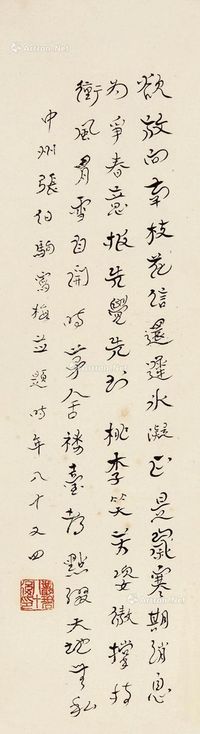 欲放向南枝花信還遲冰凝正是嚴寒期消息
为爭春意報先覺先知桃李笑芳姿傲撐持
衝風冒雪自開時茅舍樓臺都點綴天地無私
中州張伯駒寫梅並題時年八十又四